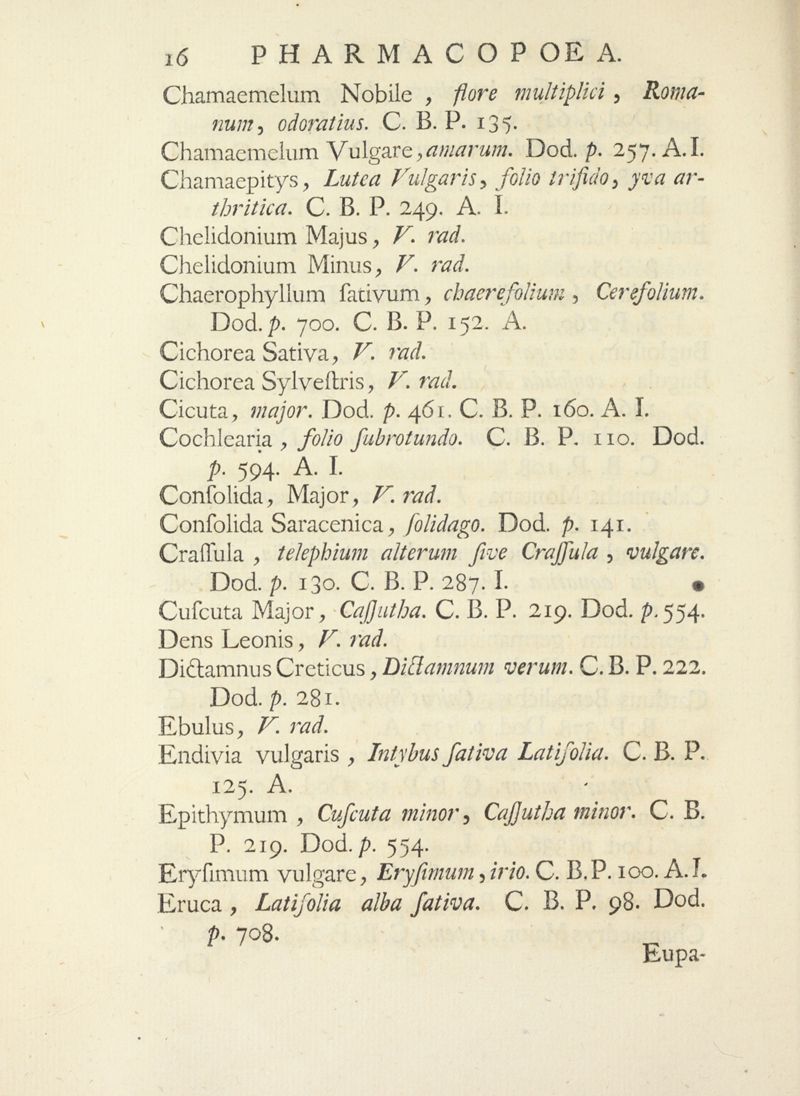 16 PHARMACOPOEA.
Chamaemelum Nobile , flore multiplici , Roma-
num, odoratius. C. B. P. 135.
Chamaemelum Vulgare, amarum. Dod. p. 257. A. I.
Chamaepitys, Lutea Vulgaris, folio trifido, yva ar-
thritica. C. B. P. 249. A. I.
Chelidonium Majus, V. rad.
Chelidonium Minus, V. rad.
Chaerophyllum ſativum, chaerefolium , Cerefolium.
Dod. p. 700. C. B. P. 152. A.
Cichorea Sativa, V. rad.
Cichorea Sylveſtris, V. rad.
Cicuta, major. Dod. p. 461. C. B. P. 160. A. I.
Cochlearia , folio ſubrotundo. C. B. P. 110. Dod.
p. 594. A. I.
Conſolida, Major, V. rad.
Conſolida Saracenica, ſolidago. Dod. p. 141.
Craſſula , telephium alterum ſive Craſſula , vulgare.
Dod. p. 130. C. B. P. 287. I.
Cuſcuta Major, Caſſutha. C. B. P. 219. Dod. p. 554.
Dens Leonis, V. rad.
Dictamnus Creticus, Dictamnum verum. C. B. P. 222.
Dod. p. 281.
Ebulus, V. rad.
Endivia vulgaris , Intybus ſativa Latifolia. C. B. P.
125. A.
Epithymum , Cuſcuta minor, Caſſutha minor. C. B.
P. 219. Dod. p. 554.
Eryſimum vulgare, Eryſimum, irio. C. B. P. 100. A. I.
Eruca , Latifolia alba ſativa. C. B. P. 98. Dod.
p. 708.
Eupa-